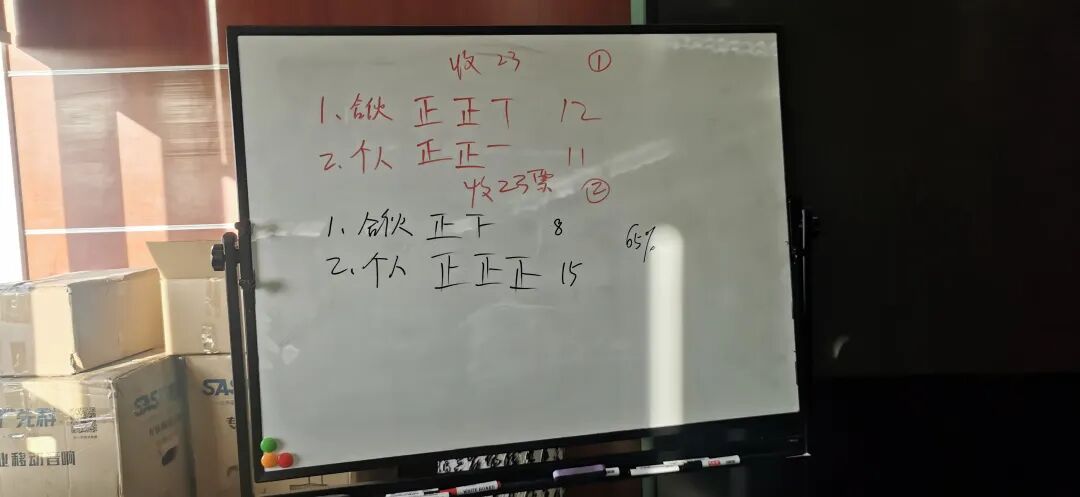 收 23 ①
1、合伙 正 正 丅 12
2、个人 正 正 一 11
收23票 ②
1、合伙 正 下 8
65%
2、个人 正 正 正 15
SAS
SAS
专
广先科
业移动音响
WHITE BOARD